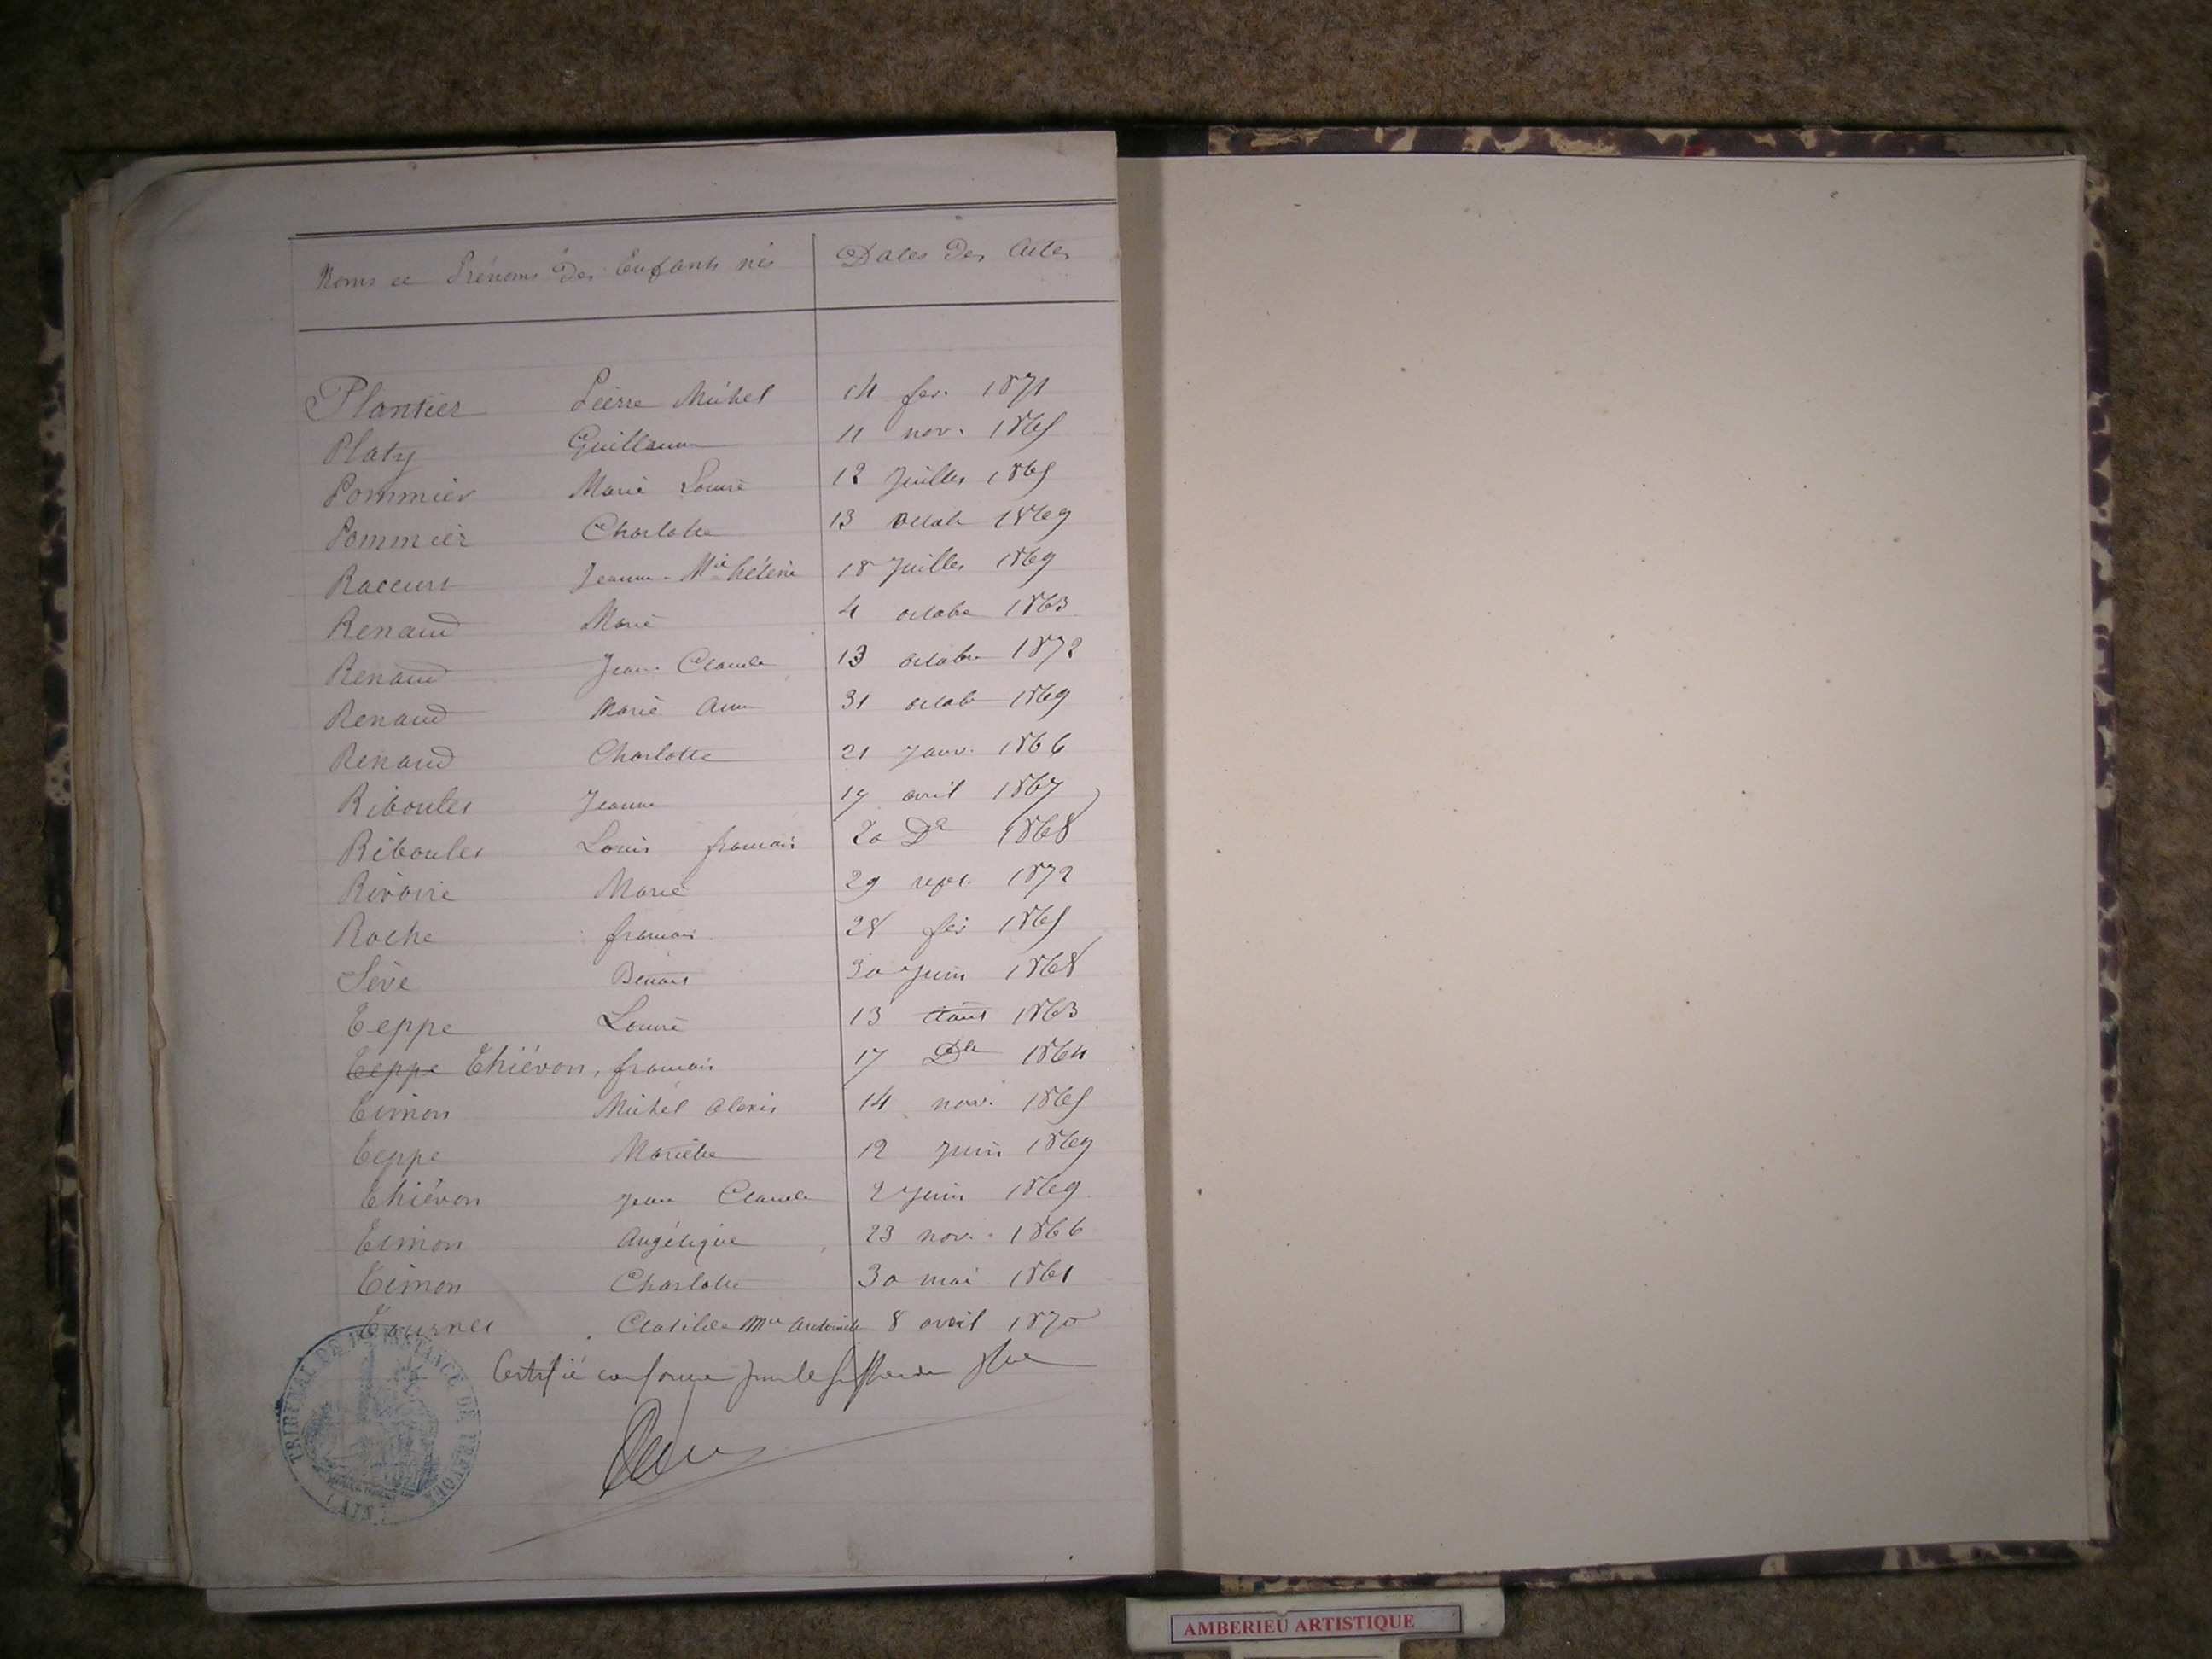 Noms et Prénoms Des Enfants nés Dates Des Actes
Plantier Pierre Michel 14 fev. 1871
Platy Guillaume 11 nov. 1865
Pommier Marie Louise 12 Juillet 1865
Pommier Charlotte 13 octob 1869
Raccurt Jeanne Mie hélène 18 Juillet 1869
Renaud Marie 4 octobre 1863
Renaud Jean Claude 13 octobre 1872
Renaud Marie Anne 31 octob 1869
Renaud Charlotte 21 Janv. 1866
Riboulet Jeanne 17 avril 1867
Riboulet Louis françois 20 De 1868
Rivoire Marie 29 sept. 1872
Roche françois 28 fev 1865
Sève Benoit 30 Juin 1868
Teppe Louise 13 Aout 1863
Teppe Thiévon, françois 17 1864
Timon Michel Alexis 14 nov. 1865
Teppe Mariette 12 Juin 1869
Thiévon Jean Claude 2 Juin 1869
Timon Angélique 23 nov. 1866
Timon Charlotte 30 mai 1861
Tournet Clotilde Mie Antoinette 8 avril 1870
Certifié conforme
TRIBUNAL DE INSTANCE DE TREVOUX
(AIN)
AMBERIEU ARTISTIQUE